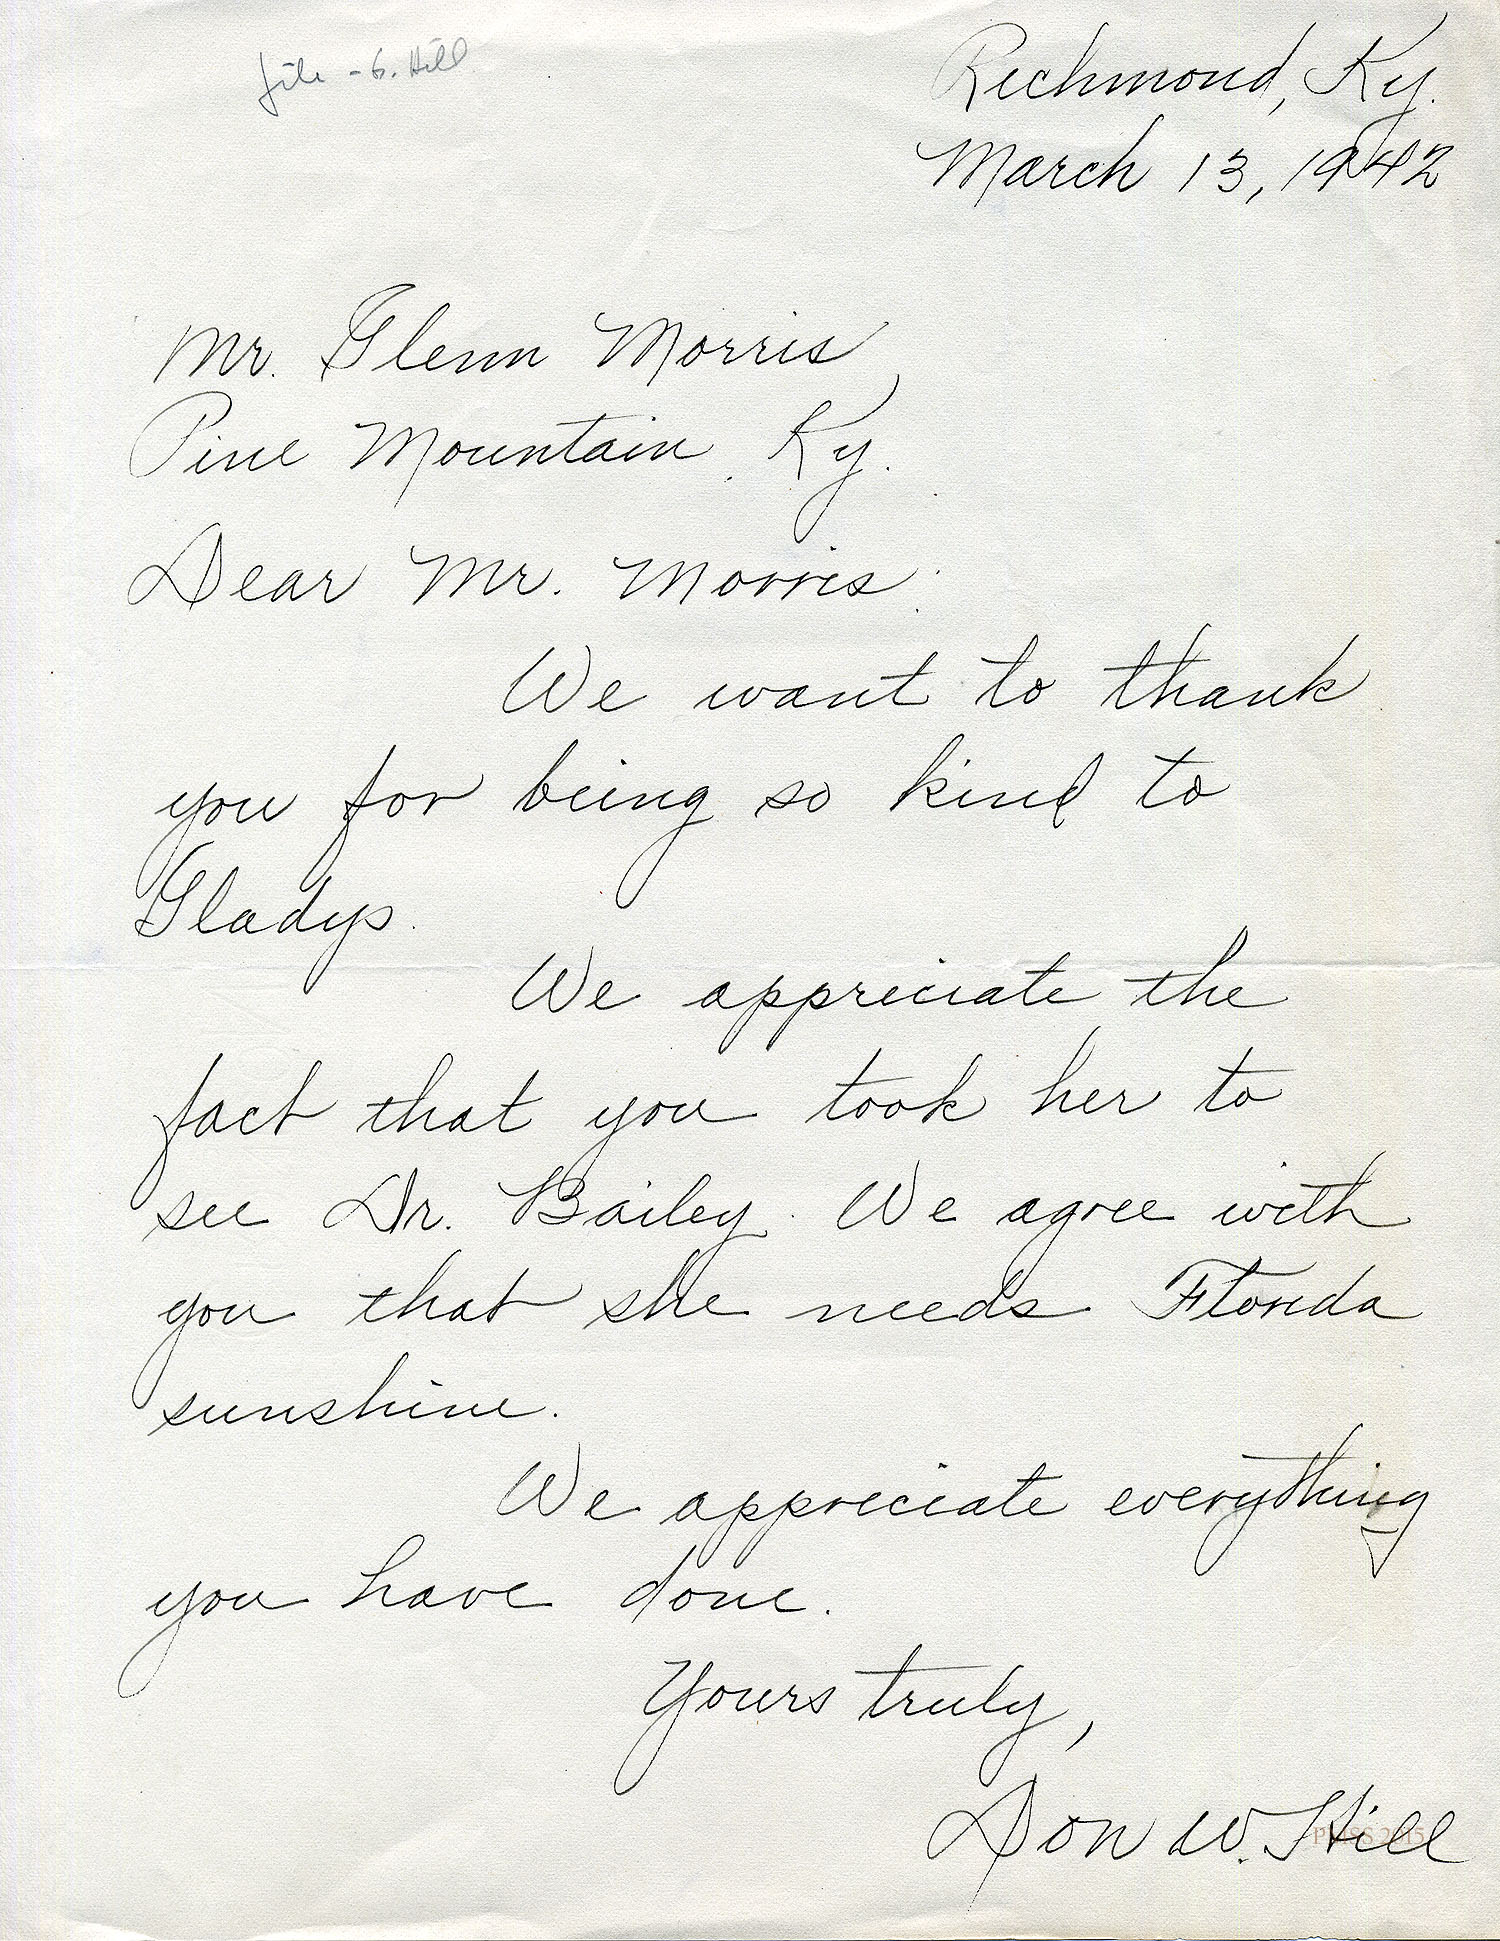 file - G. Hill
Richmond, Ky.
March 13, 1942
Mr. Glenn Morris,
Pine Mountain, Ky.
Dear Mr. Morris:
We want to thank
you for being so kind to
Gladys.
We appreciate the
fact that you took her to
see Dr. Bailey. We agree with
you that she needs Florida
sunshine.
We appreciate everything
you have done.
Yours truly,
Don W. Hill
PMSS 2015